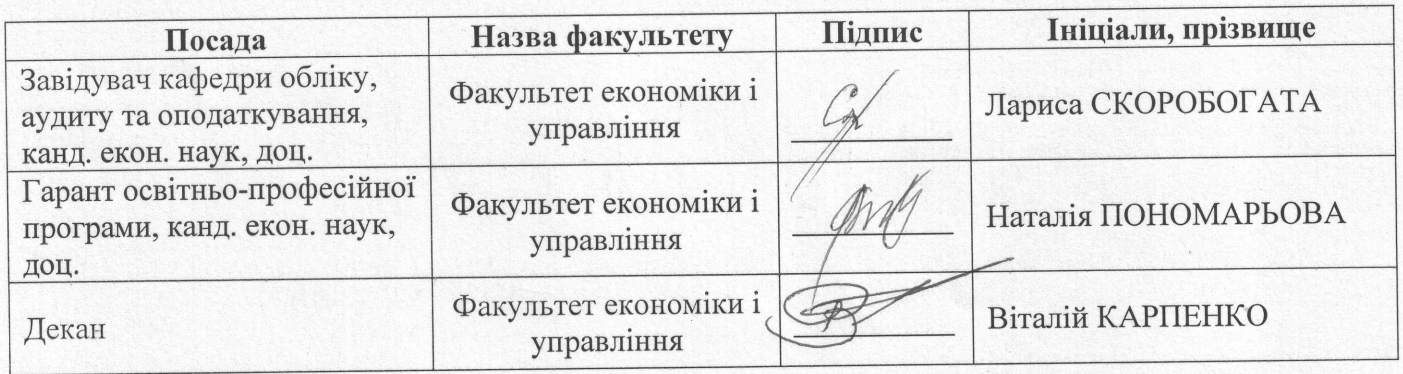 Посада Назва факультету Підпис Ініціали, прізвище
Завідувач кафедри обліку,
аудиту та оподаткування,
канд. екон. наук, доц.
Факультет економіки і
управління
Лариса СКОРОБОГАТА
Гарант освітньо-професійної
програми, канд. екон. наук,
доц.
Факультет економіки і
управління
Наталія ПОНОМАРЬОВА
Декан
Факультет економіки і
управління
Віталій КАРПЕНКО